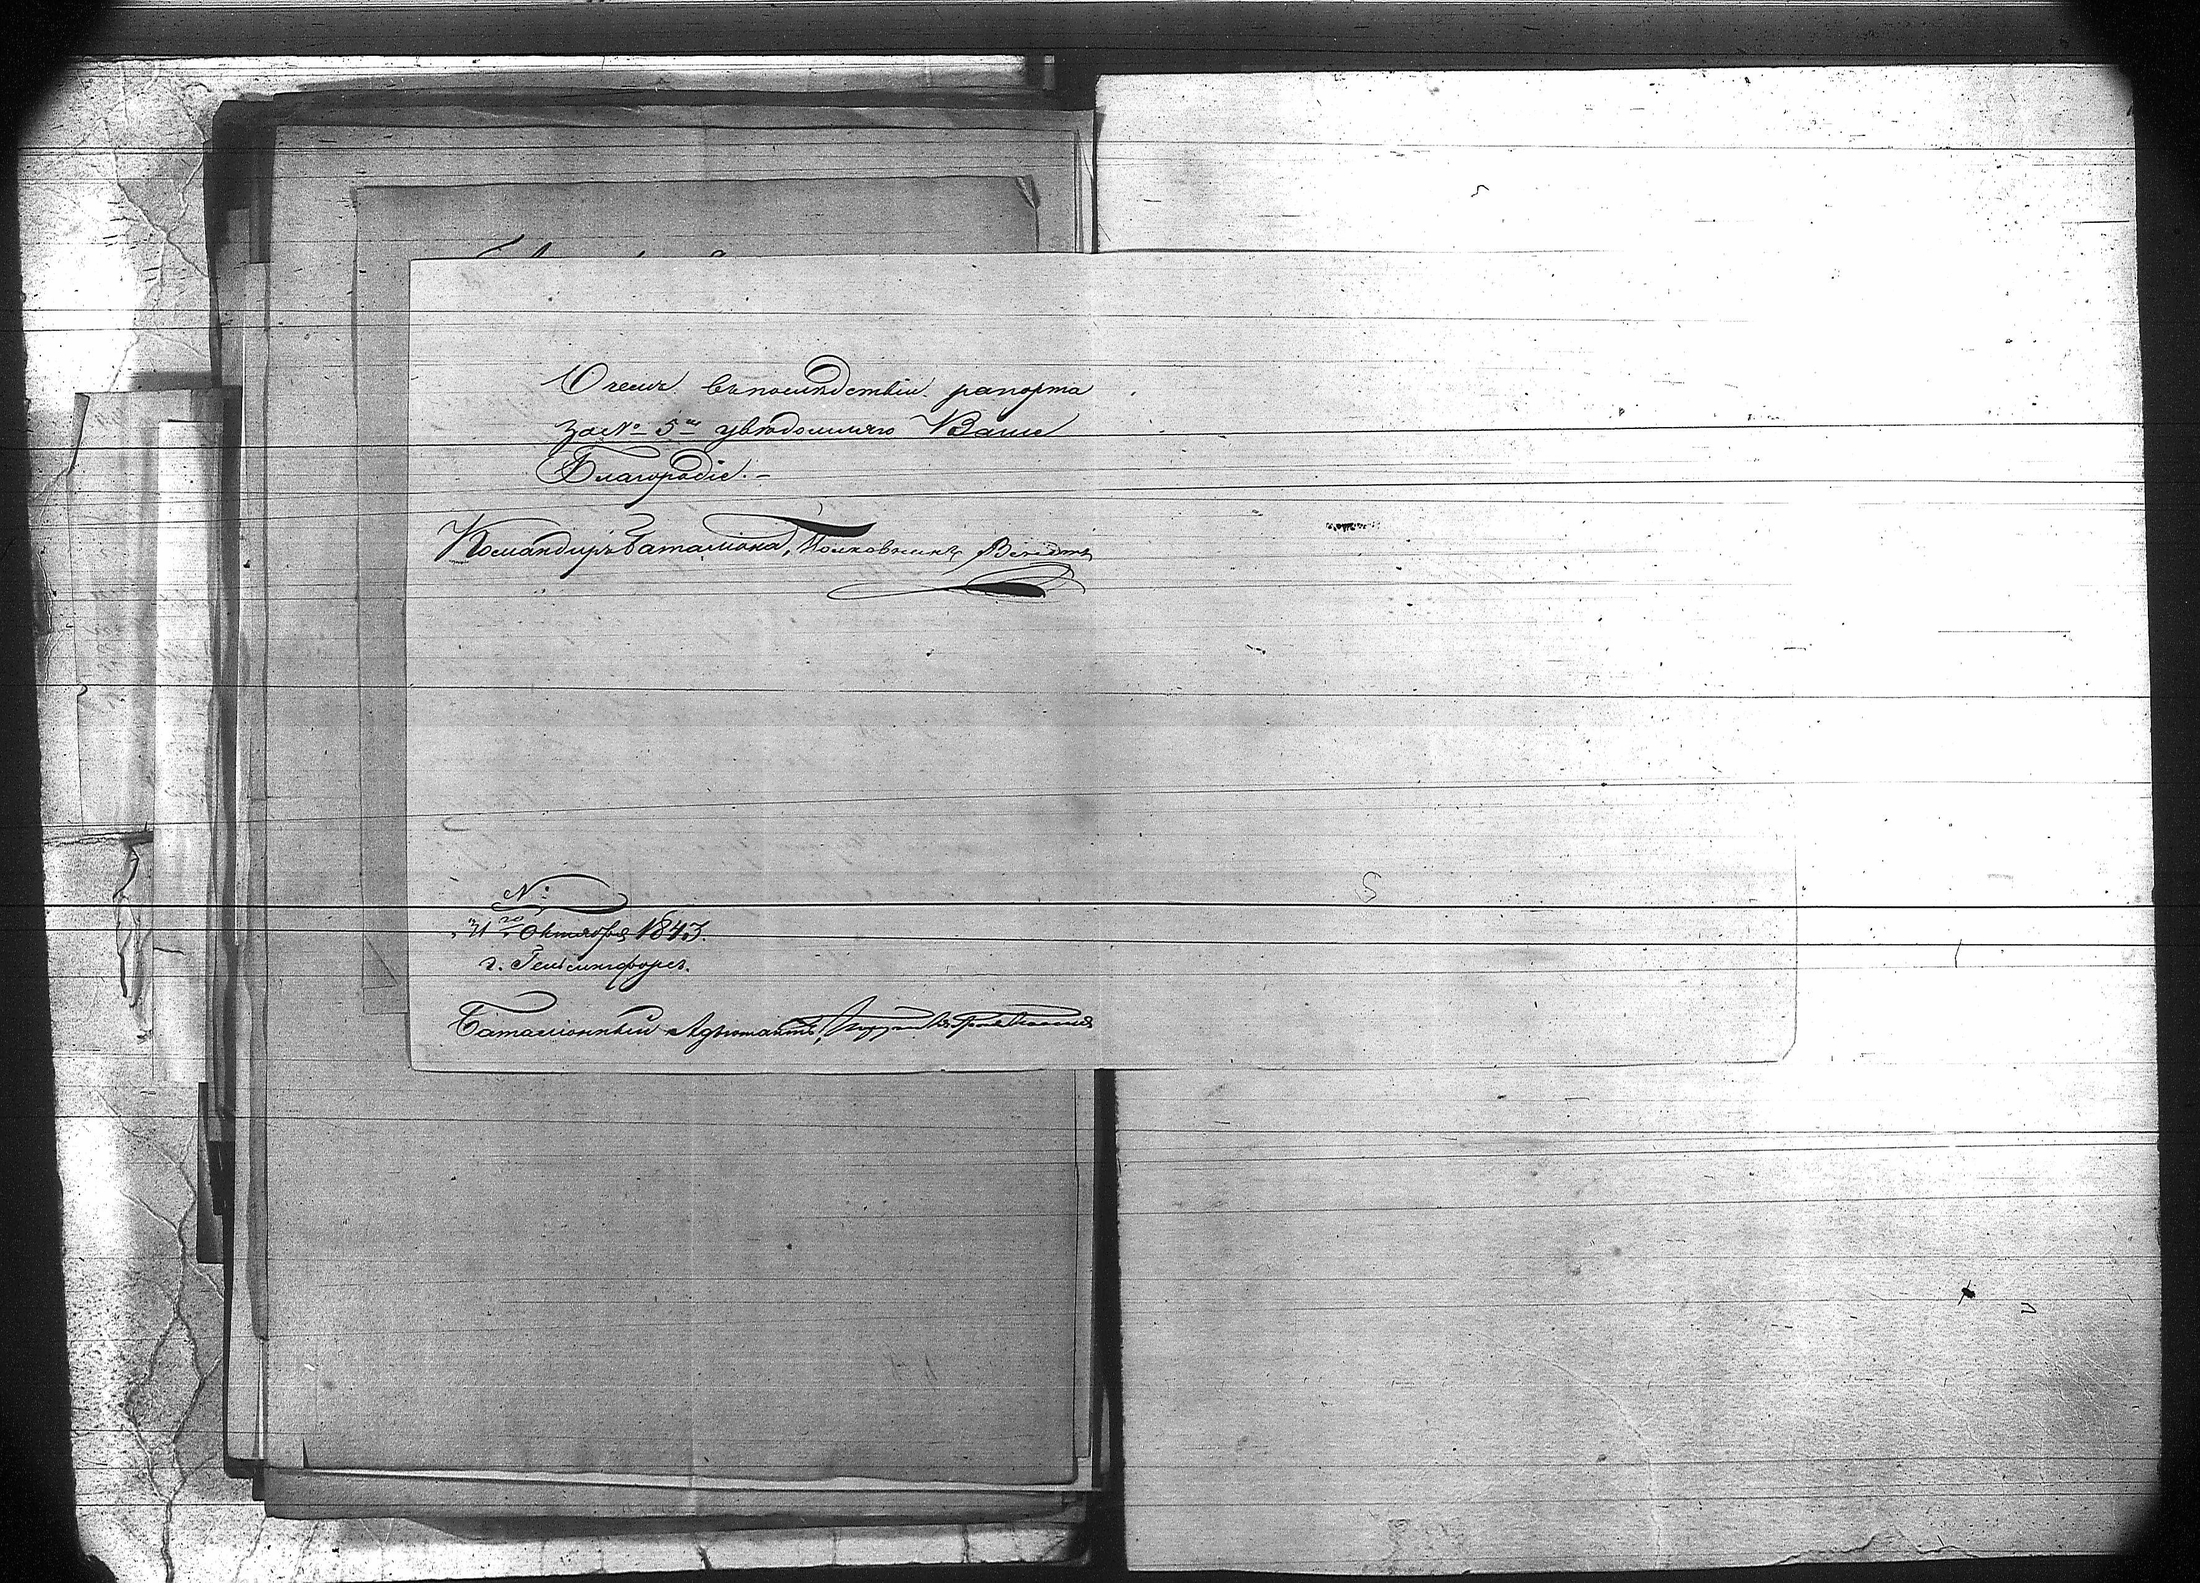 О чемъ въ послѣдствіи рапорта
за № 5м увѣдомляю Ваше
Благородіе.-
Командиръ Баталіона, Полковникъ
№
"31го" Октября 1843.
г. Гельсингфорсъ.
Баталіонный Адъютантъ,